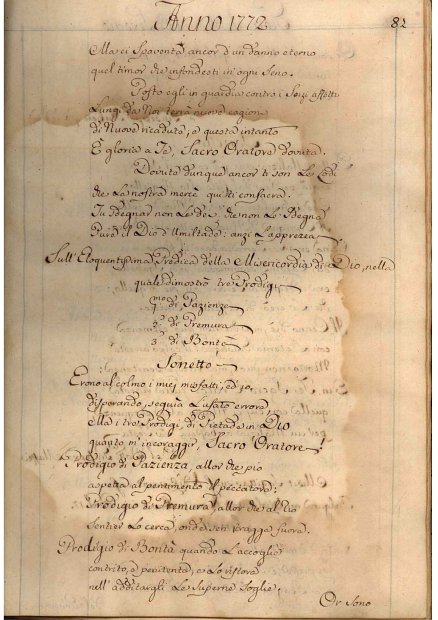 Anno 1772
82
Ma ci spaventa ancor d'un danno eterno
quel timor che infondesti in ogni Seno.
Posto egli in guardia contro i Sensi affetti
Lungi da Noi terrà nuove cagioni
di Nuove ricadute, e questa intanto
È gloria a Te, Sacro Oratore dovuta.
Dovute dunque ancor ti son Le Lodi
che La nostra mercè qui ti consacra.
Tu Sdegnar non Le dei che non Le Sdegna
Pure il Dio d'Umiltade: anzi L'apprezza
Sull'Eloquentissima Predica della Misericordia di Dio, nella
quale dimostrò tre Prodigi
1mo di Pazienza
2o di Premura
3o di Bontà
Sonetto
Erono al colmo i miei misfatti, ed io,
disperando, seguia L'usato errore
Ma i tre Prodigi, di Pietade in Dio
quanto m'incoraggir, Sacro Oratore!
Prodigio di Pazienza, allor che pio
aspetta al pentimento il peccatore;
Prodigio di Premura, allor che al rio
Sentier Lo cerca, onde sen tragga fuora.
Prodigio di Bontà quando L'accoglie
contrito, e penitente, e Lo ristora
nell'additargli Le Superne Soglie.
Or Sono